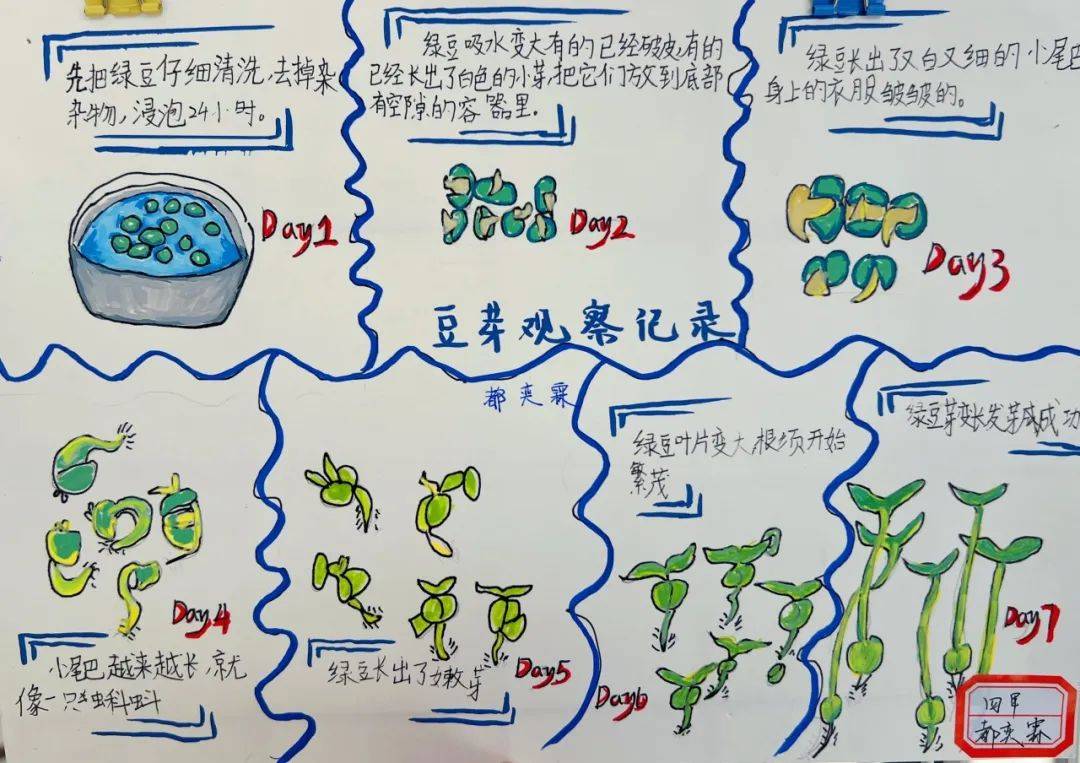 先把绿豆仔细清洗,去掉杂
杂物,浸泡24小时。
Day1
绿豆吸水变大有的已经破皮,有的
已经长出了白色的小芽,把它们放到底部
有空隙的容器里.
Day2
绿豆长出了又白又细的小尾巴
身上的衣服皱皱的。
Day3
豆芽观察记录
都奕霖
Day4
小尾巴越来越长,就
像一只蝌蚪
绿豆长出了嫩芽
Day5
绿豆叶片变大,根须开始
繁茂
Day6
绿豆芽变长发芽成成功
Day7
四甲
都奕霖